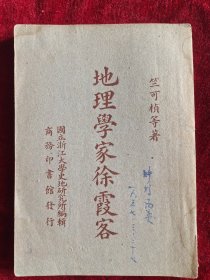 竺可楨等著
地理學家徐霞客
國立浙江大學史地研究所編輯
商務印書館發行